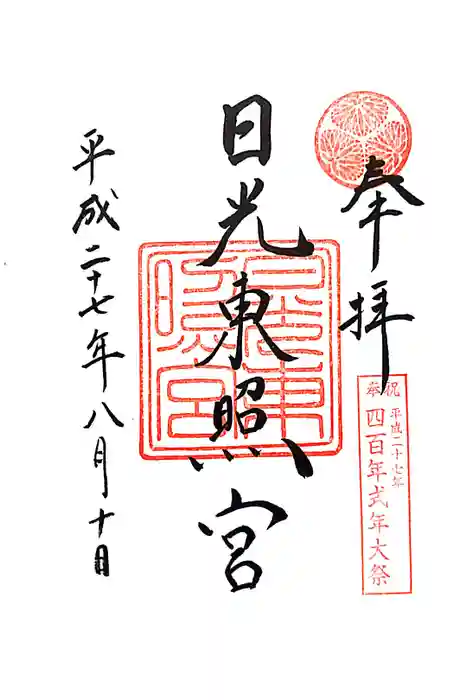 奉拝
奉祝
平成二十七年
四百年式年大祭
日光東照宮
平成二十七年八月十日